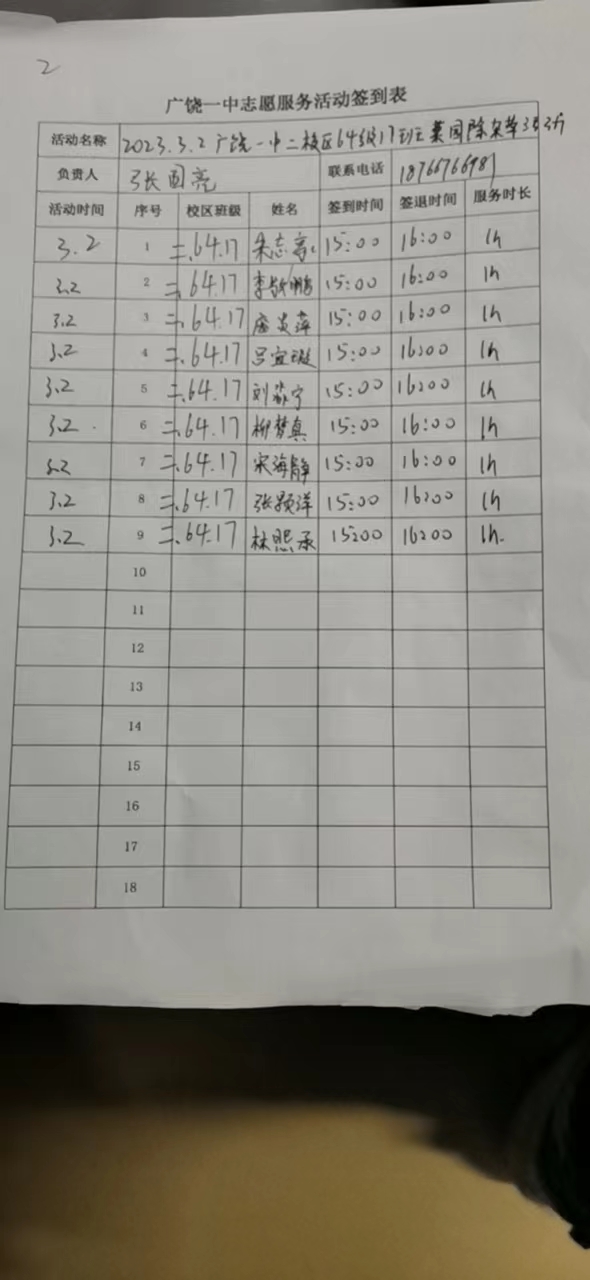 2
广饶一中志愿服务活动签到表
活动名称 2023.3.2 广饶一中二校区64级17班 国除杂草
负责人 张国亮 联系电话 18766766987
活动时间 序号 校区班级 姓名 签到时间 签退时间 服务时长
3.2 1 二.64.17 朱志 15:00 16:00 1h
3.2 2 二.64.17 李 鹏 15:00 16:00 1h
3.2 3 二.64.17 萍 15:00 16:00 1h
3.2 4 二.64.17 吕宜璇 15:00 16:00 1h
3.2 5 二.64.17 刘 宁 15:00 16:00 1h
3.2 6 二.64.17 柳梦真 15:00 16:00 1h
3.2 7 二.64.17 宋海静 15:00 16:00 1h
3.2 8 二.64.17 张颢洋 15:00 16:00 1h
3.2 9 二.64.17 林熙承 15:00 16:00 1h.
10
11
12
13
14
15
16
17
18